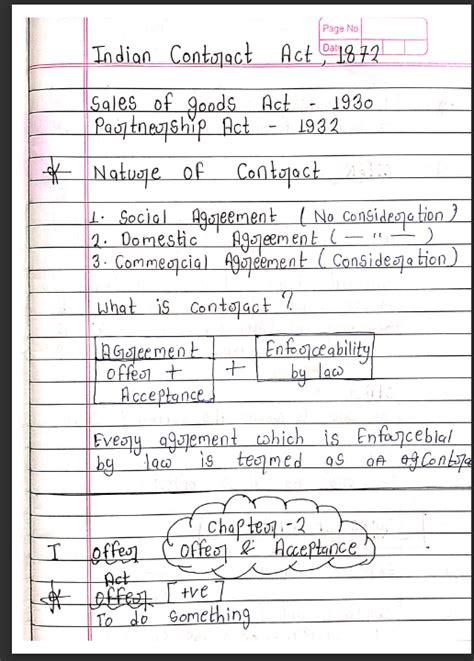 Page No
Date
Indian Contract Act, 1872
Sales of goods Act - 1930
Partnership Act - 1932
* Nature of Contract
1. Social Agreement (No consideration)
2. Domestic Agreement (— " —)
3. Commercial Agreement (Consideration)
What is contract?
Agreement
offer +
Acceptance
+
Enforceability
by law
Every agreement which is Enforcebial
by law is termed as a Contra
Chapter:-2
Offer & Acceptance
I offer
Act
* offer [+ve]
To do something